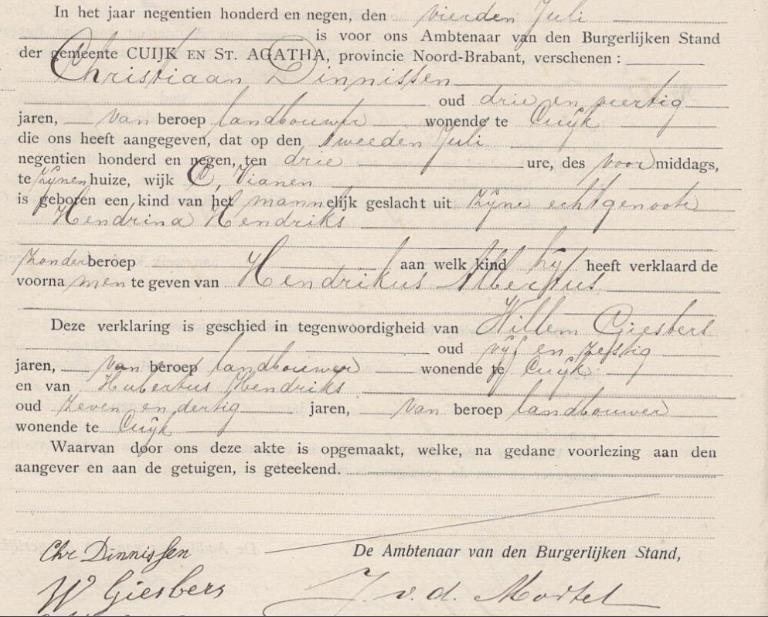 In het jaar negentien honderd en negen, den vierden Juli
is voor ons Ambtenaar van den Burgerlijken Stand
der gemeente CUIJK EN ST. AGATHA, provincie Noord-Brabant, verschenen :
Christiaan Dinnissen
oud drie en veertig
jaren, van beroep landbouwer wonende te Cuijk
die ons heeft aangegeven, dat op den tweeden Juli
negentien honderd en negen, ten drie ure, des voormiddags,
te zijnen huize, wijk C, Vianen
is geboren een kind van het mannelijk geslacht uit zijne echtgenoote
Hendrina Hendriks
zonder beroep aan welk kind hij heeft verklaard de
voornamen te geven van Hendrikus Albertus
Deze verklaring is geschied in tegenwoordigheid van Willem Giesbers
oud vijf en zestig
jaren, van beroep landbouwer wonende te Cuijk
en van Hubertus Hendriks
oud zeven en dertig jaren, van beroep landbouwer
wonende te Cuijk
Waarvan door ons deze akte is opgemaakt, welke, na gedane voorlezing aan den
aangever en aan de getuigen, is geteekend.
Chr Dinnissen
De Ambtenaar van den Burgerlijken Stand,
W Giesbers
J. v. d. Mortel